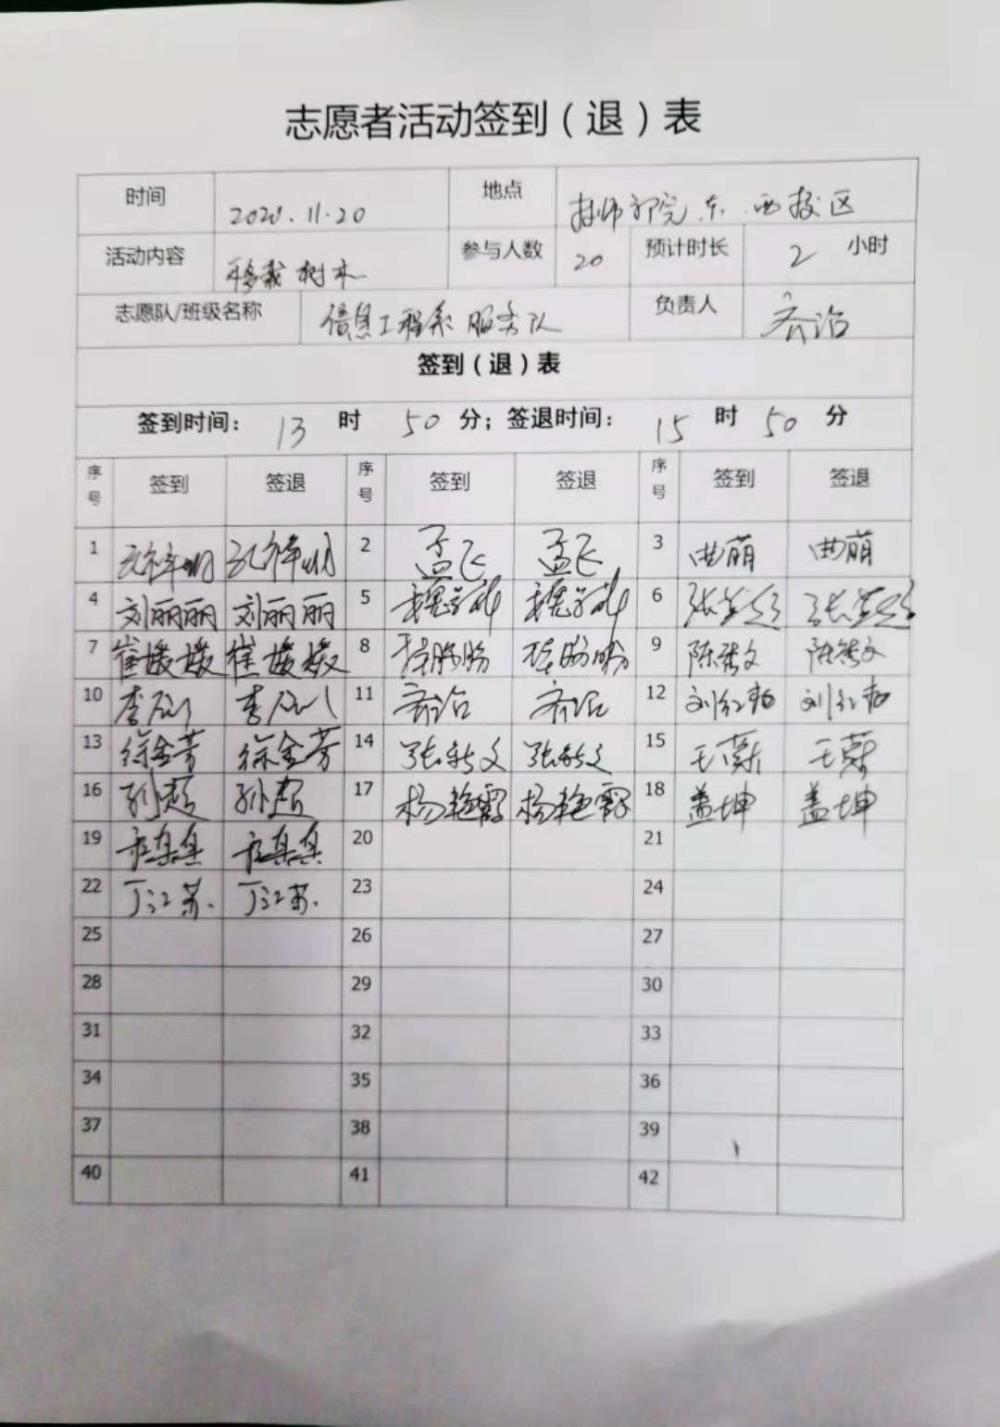 志愿者活动签到（退）表
时间 2020.11.20 地点 东、西校区
活动内容 移栽树木 参与人数 20 预计时长 2 小时
志愿队/班级名称 信息工程系服务队 负责人 乔治
签到（退）表
签到时间： 13 时 50 分；签退时间： 15 时 50 分
序号 签到 签退 序号 签到 签退 序号 签到 签退
1 2 孟飞 孟飞 3 曲萌 曲萌
4 刘丽丽 刘丽丽 5 6
7 崔媛媛 崔媛媛 8 9
10 11 乔治 乔治 12 刘红艳 刘红艳
13 徐金芳 徐金芳 14 张新文 张新文 15
16 孙超 孙超 17 杨艳霞 杨艳霞 18 盖坤 盖坤
19 20 21
22 丁江苏. 丁江苏. 23 24
25 26 27
28 29 30
31 32 33
34 35 36
37 38 39
40 41 42